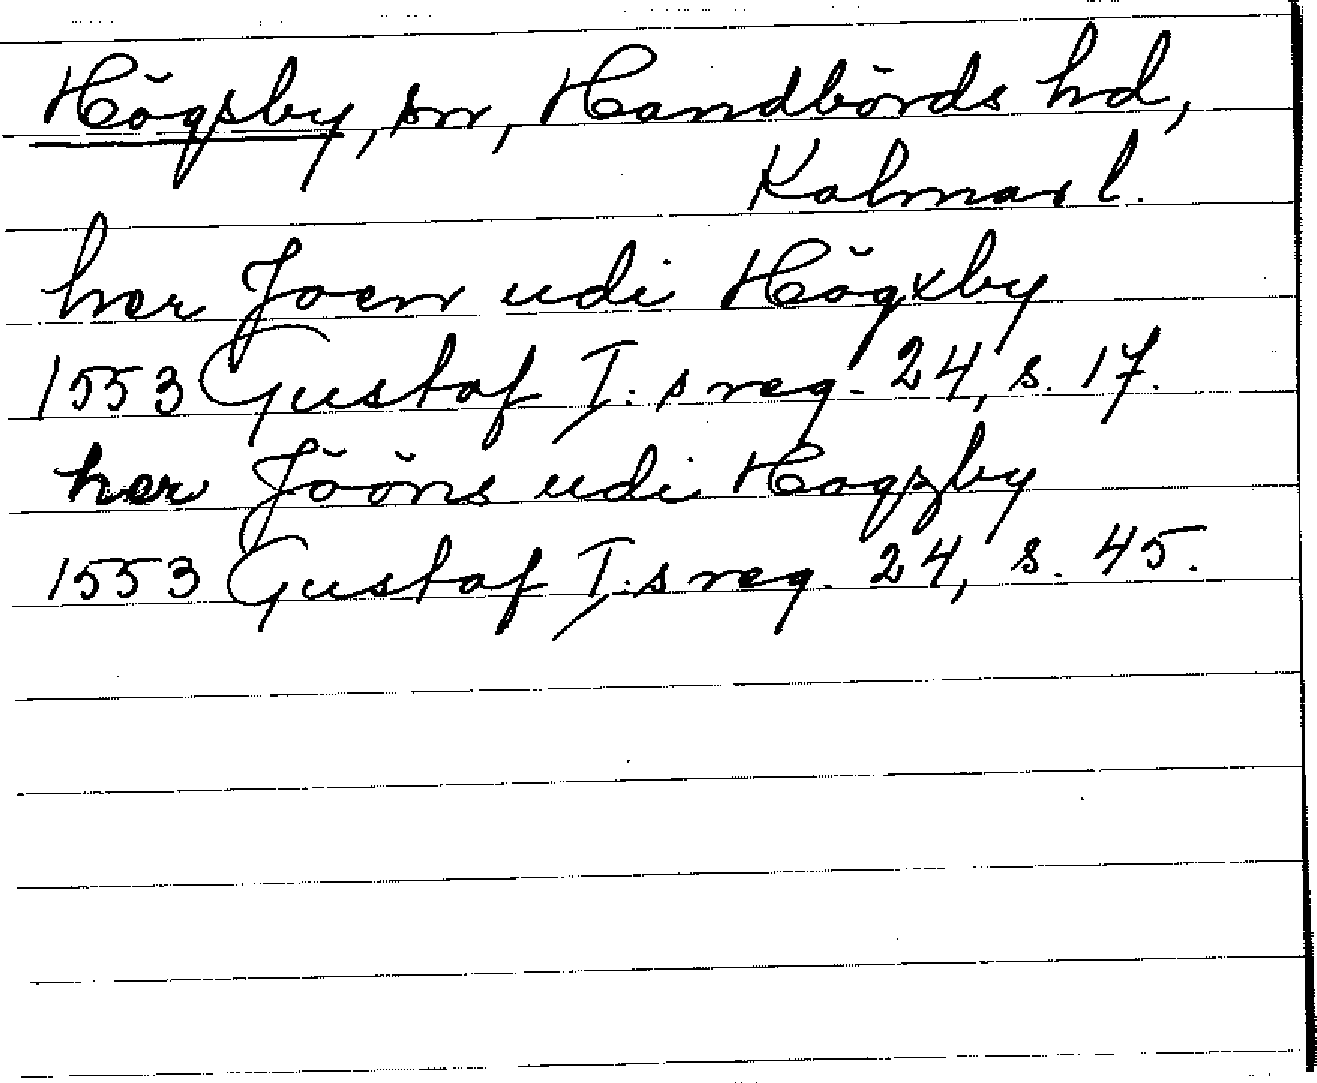 Högsby, sn, Handbörds hd,
Kalmar l.
her Joen udi Högxby
1553 Gustaf I:s reg. 24, s. 17.
her Jööns udi Hogzby
1553 Gustaf I:s reg. 24, s. 45.